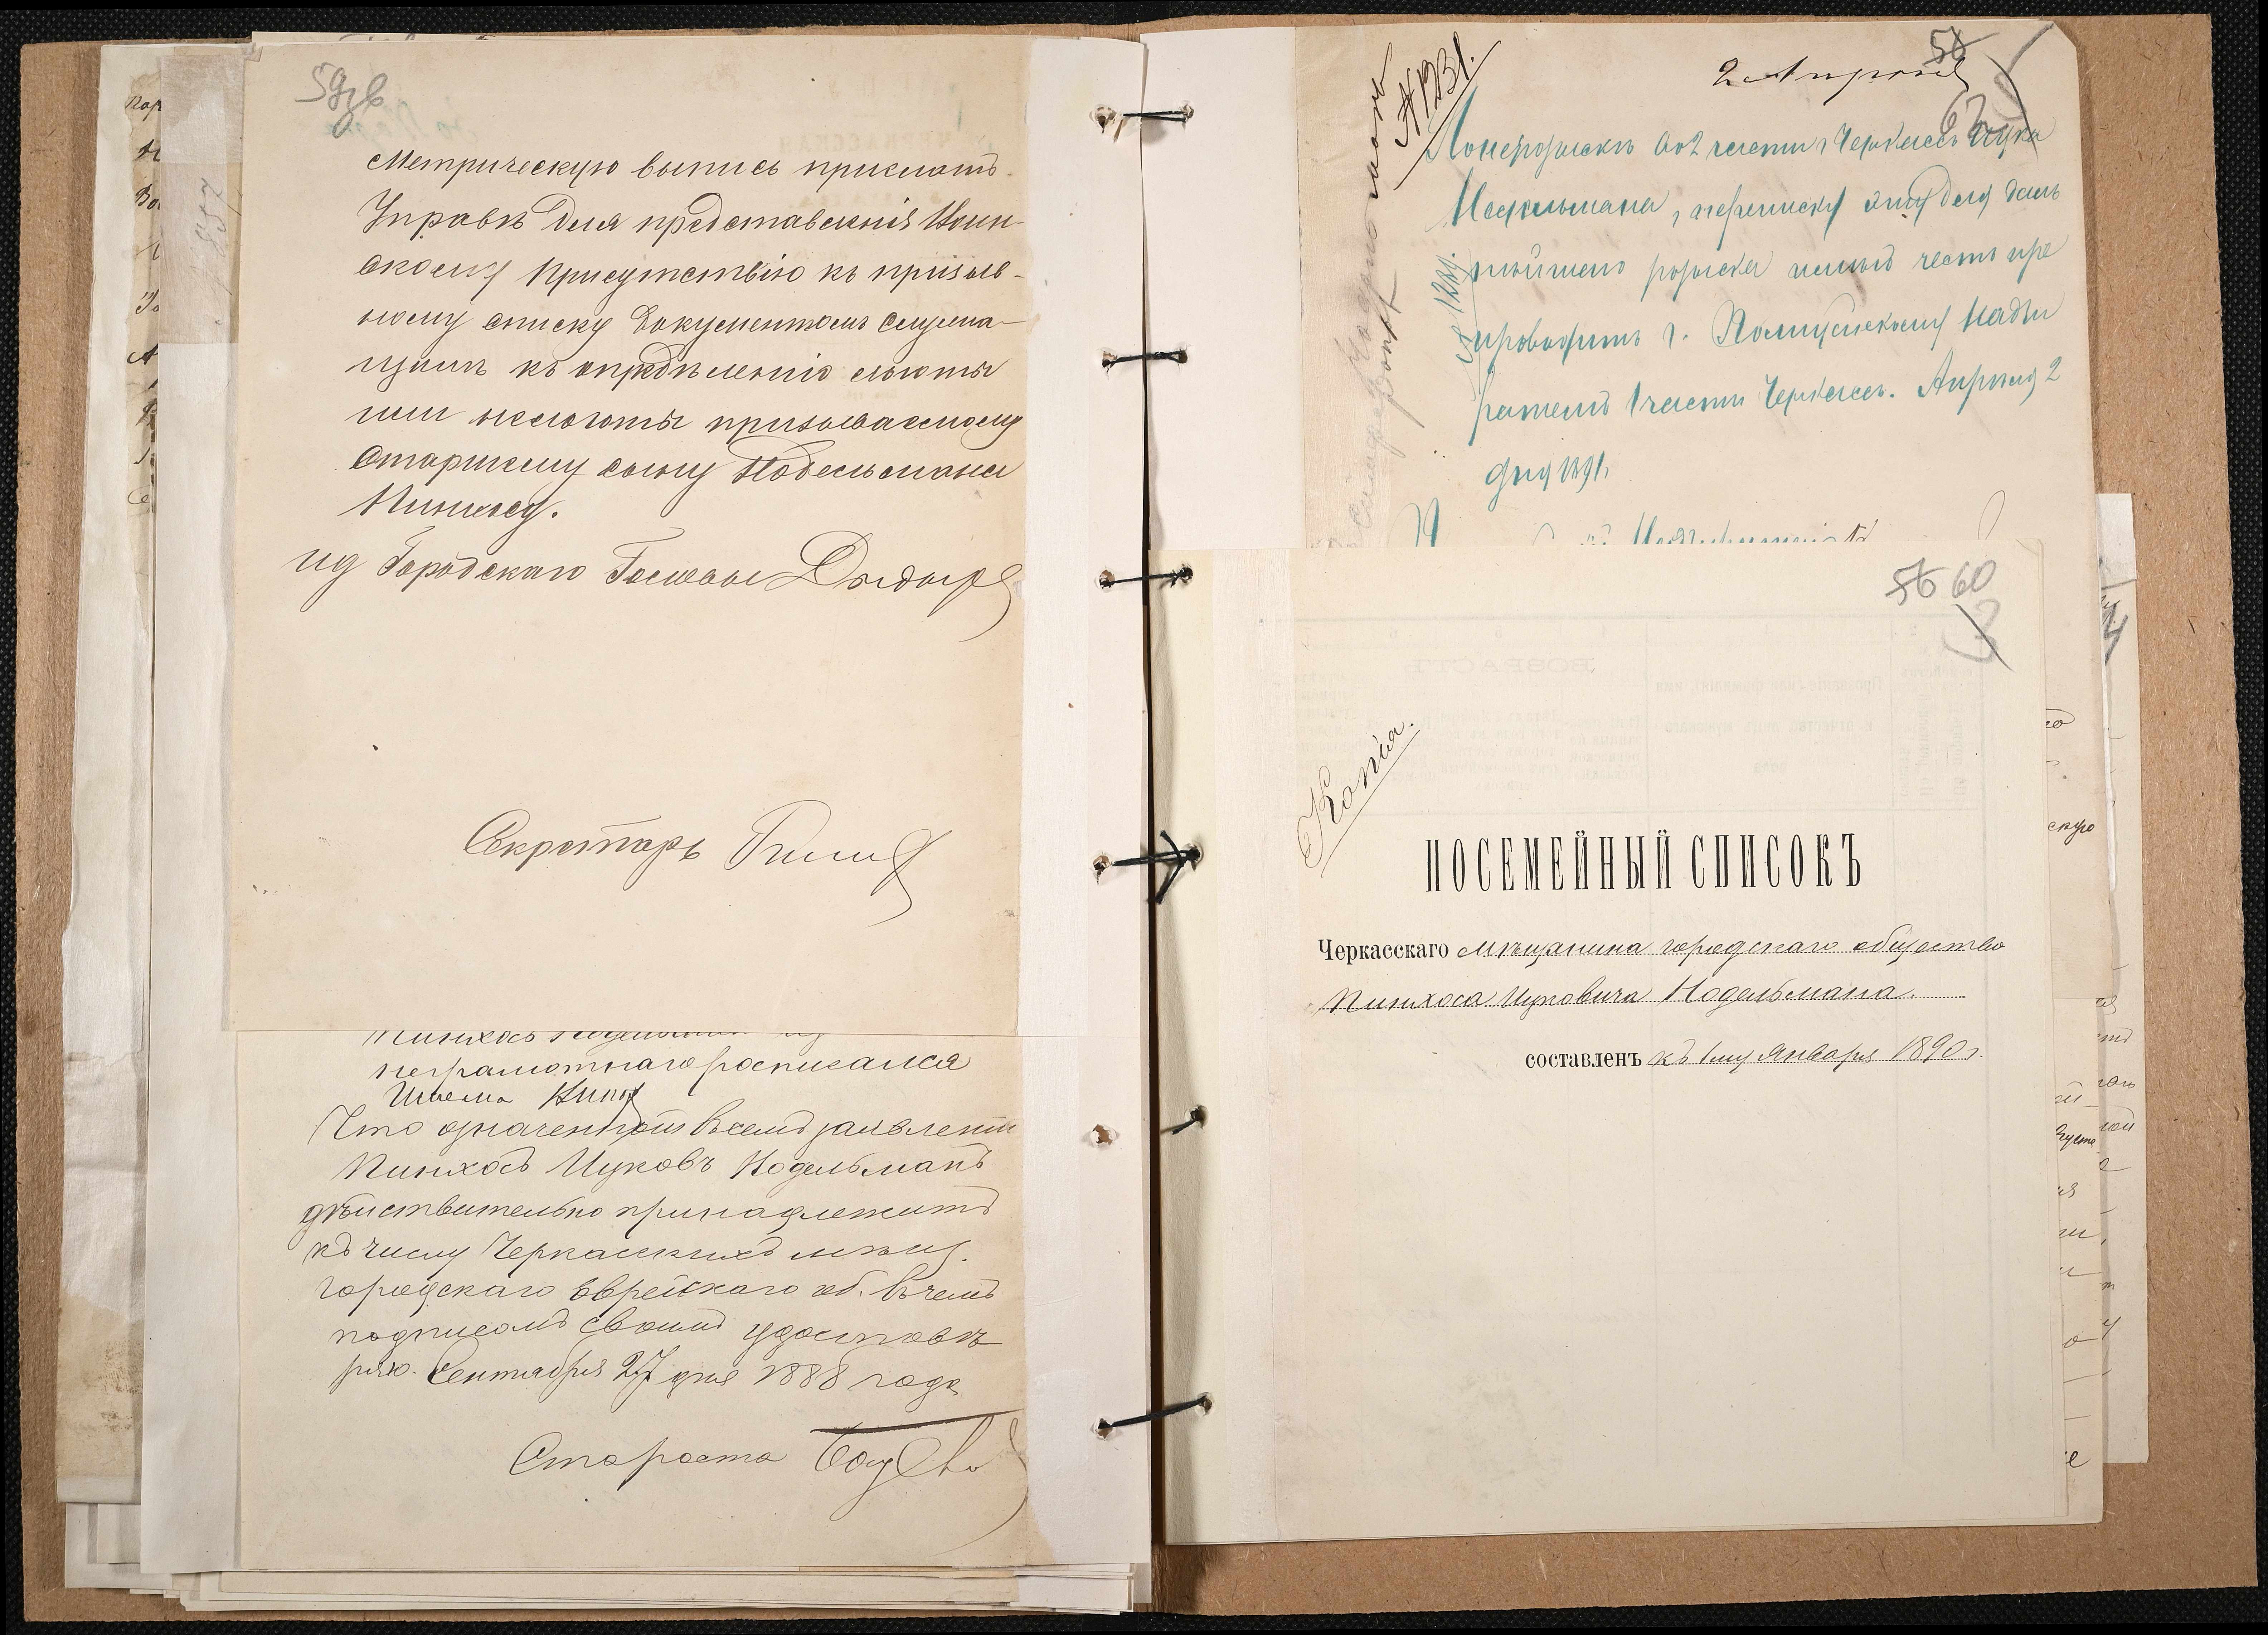 59зв
Метрическую выпись прислать
Управѣ для представленія Воин-
скому Присутствію къ призыв-
ному списку документомъ служа-
щимъ къ опредѣленію льготы
или нельготы призываемому
старшему сыну Нодельмана
Пинхосу.
ид Городскаго Головы
Секретарь
Пинхосъ Нодельман
неграмотнаго росписался
Что означенный в семъ заявлении
Пинхосъ Ицковъ Нодельманъ
дѣйствительно принадлежитъ
къ числу Черкасскихъ мѣщ.
городскаго Еврейскаго об. въ чемъ
подписомъ своимъ удостовѣ
ряю. Сентября 27 дня 1888 года
Староста
2 Апрѣля
58
62
№ 1231.
По нерозыску во 2 части г Черкассъ Ицка
Нодельмана, переписку эту для даль
нѣйшего розыска имѣю честь пре
проводить г. Полицейскому Надзи
рателю 1 части Черкассъ. Апрѣля 2
дня 1891г
56 60
Копія.
ПОСЕМЕЙНЫЙ СПИСОКЪ
Черкасскаго мѣщанина городскаго общества
Пинхоса Ицковича Нодельмана.
составленъ къ 1му Января 1890 г.